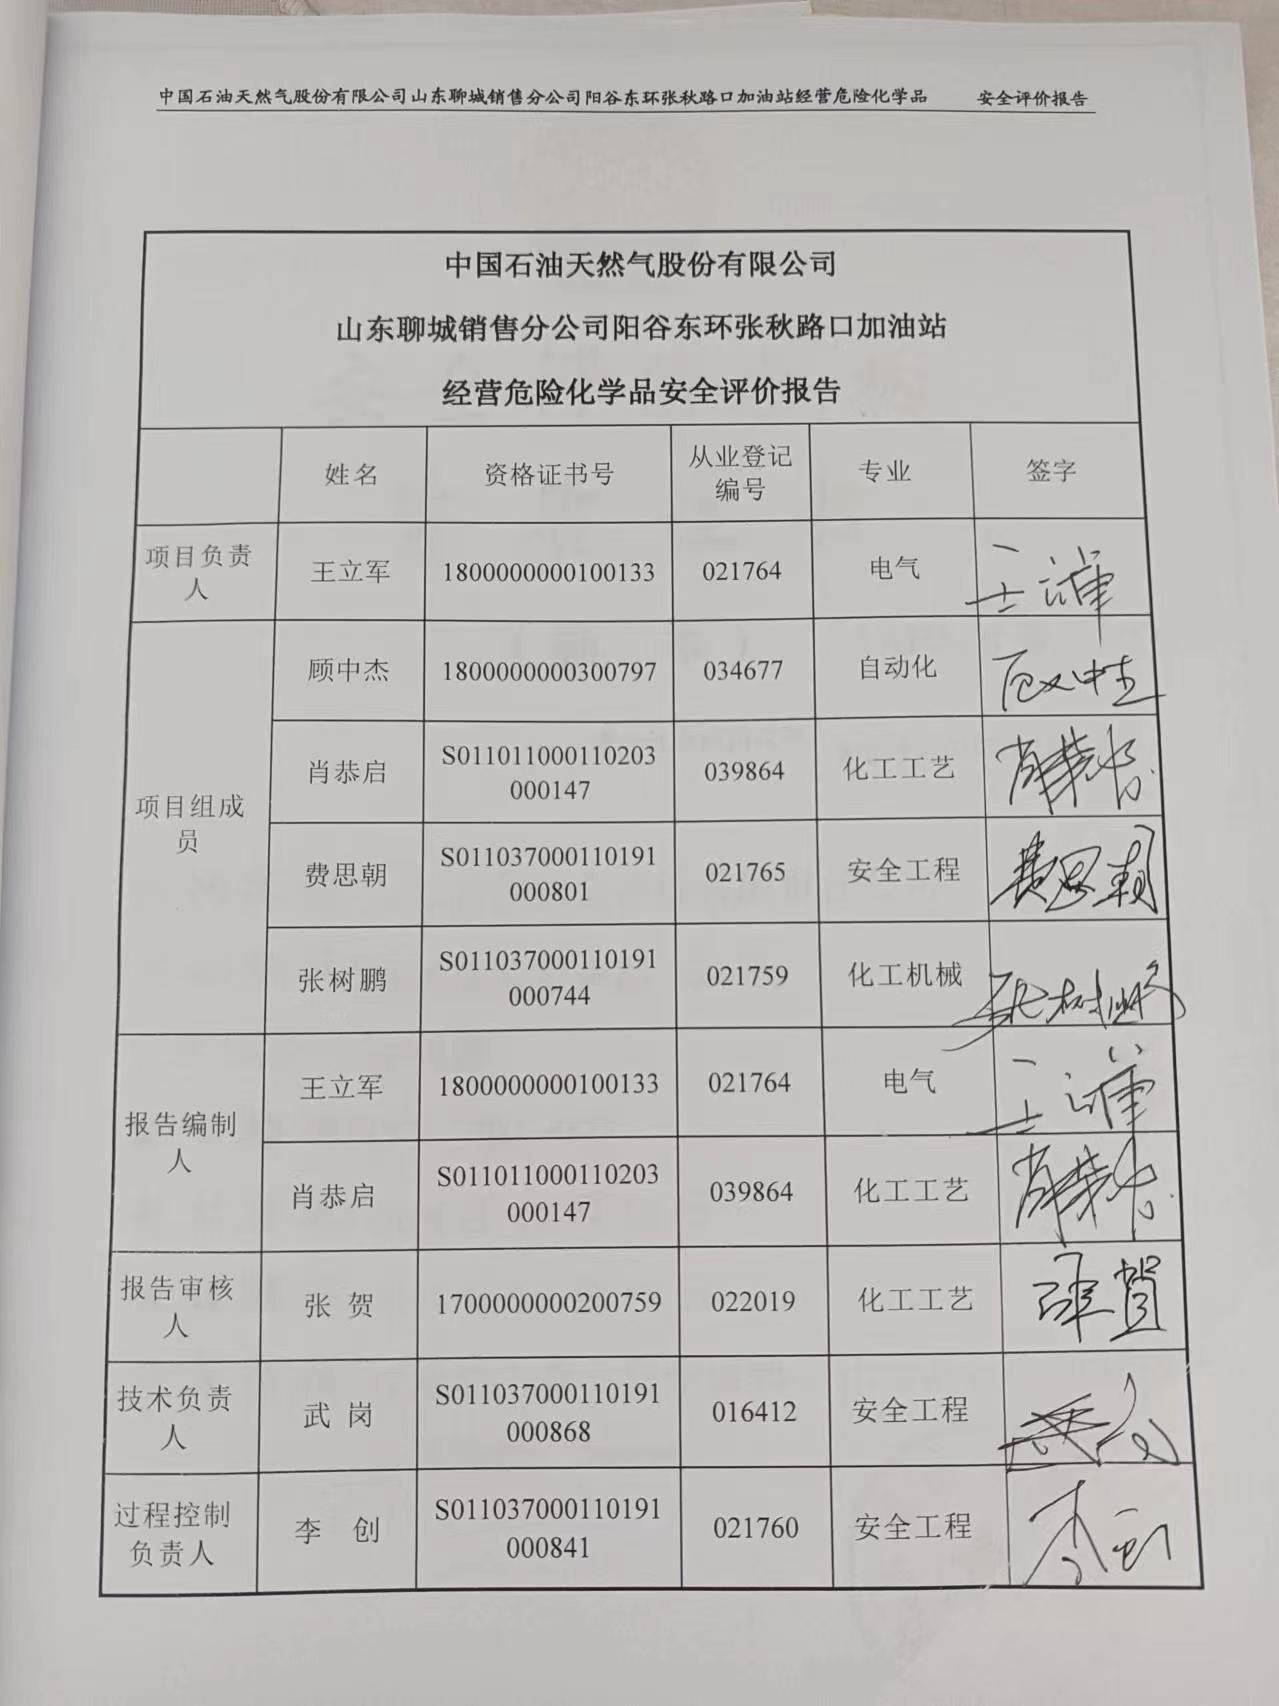 中国石油天然气股份有限公司山东聊城销售分公司阳谷东环张秋路口加油站经营危险化学品 安全评价报告
中国石油天然气股份有限公司
山东聊城销售分公司阳谷东环张秋路口加油站
经营危险化学品安全评价报告
姓名 资格证书号 从业登记编号 专业 签字
项目负责人 王立军 1800000000100133 021764 电气 王立军
项目组成员 顾中杰 1800000000300797 034677 自动化 顾中杰
肖恭启 S011011000110203000147 039864 化工工艺 肖恭启
费思朝 S011037000110191000801 021765 安全工程 费思朝
张树鹏 S011037000110191000744 021759 化工机械 张树鹏
报告编制人 王立军 1800000000100133 021764 电气 王立军
肖恭启 S011011000110203000147 039864 化工工艺 肖恭启
报告审核人 张 贺 1700000000200759 022019 化工工艺 张贺
技术负责人 武 岗 S011037000110191000868 016412 安全工程 武岗
过程控制负责人 李 创 S011037000110191000841 021760 安全工程 李创